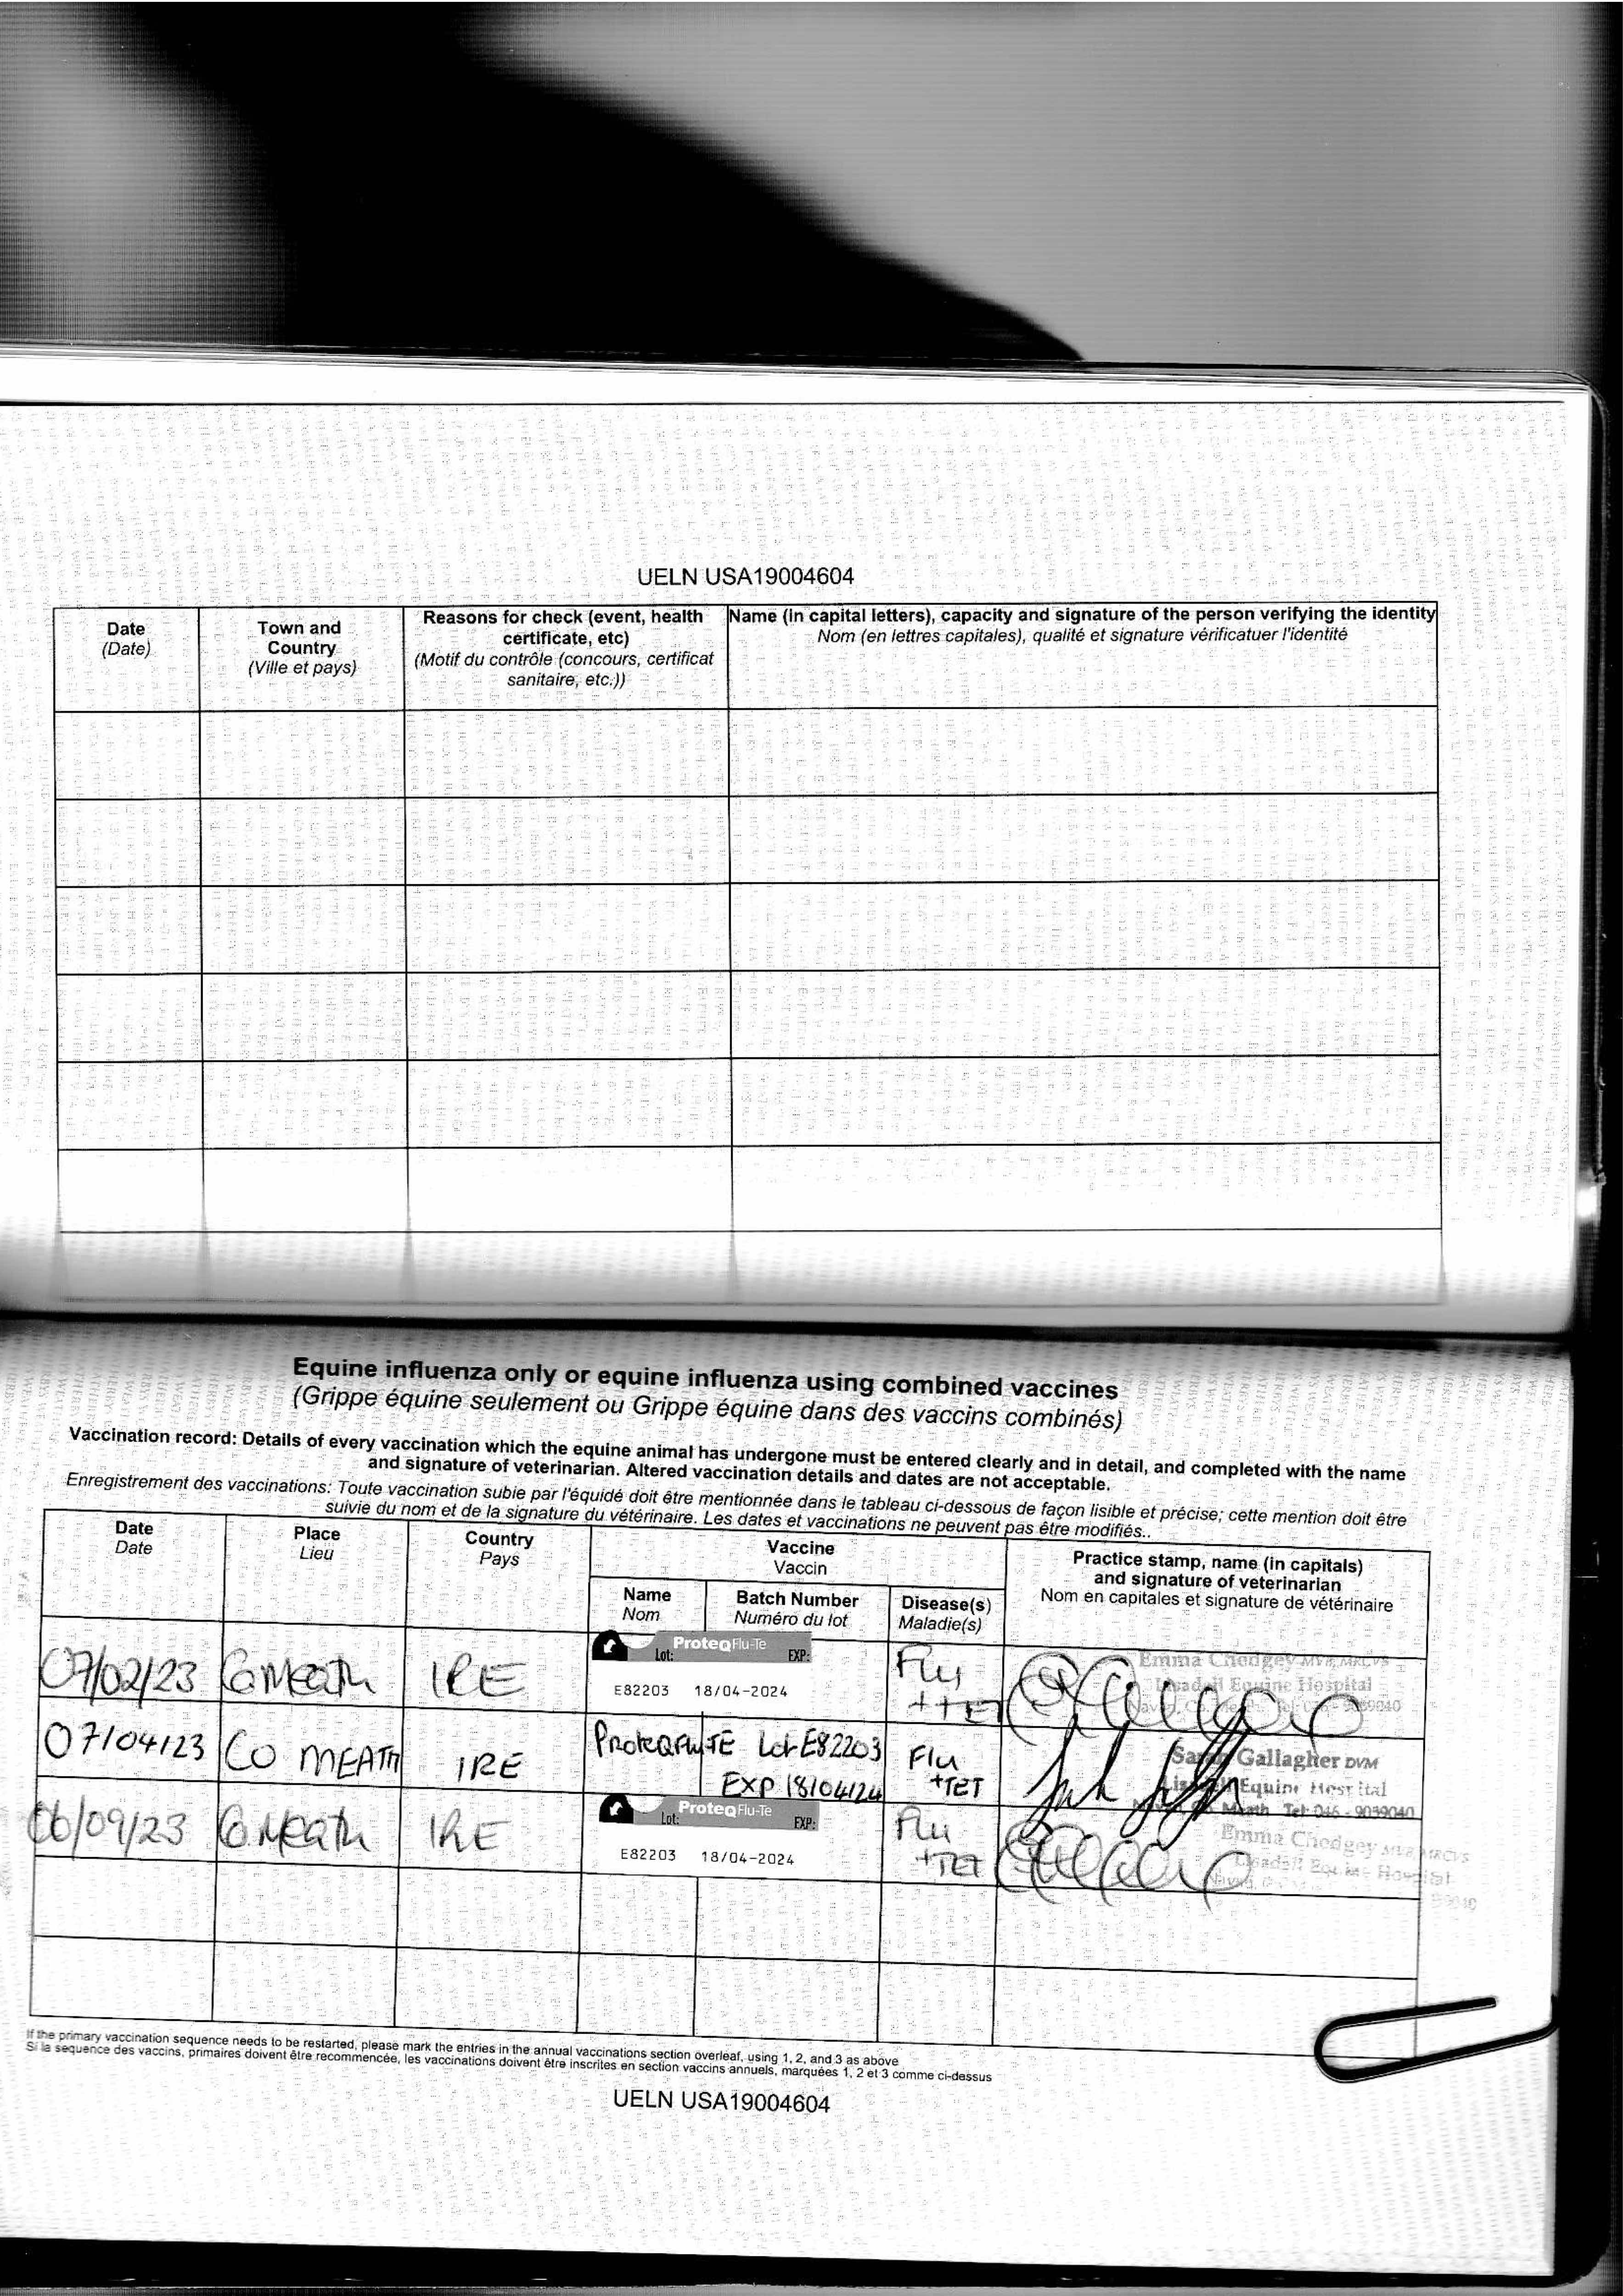 UELN USA19004604
Date
(Date)
Town and
Country
(Ville et pays)
Reasons for check (event, health
certificate, etc)
(Motif du contrôle (concours, certificat
sanitaire, etc.))
Name (in capital letters), capacity and signature of the person verifying the identity
Nom (en lettres capitales), qualité et signature vérificatuer l'identité
Equine influenza only or equine influenza using combined vaccines
(Grippe équine seulement ou Grippe équine dans des vaccins combinés)
Vaccination record: Details of every vaccination which the equine animal has undergone must be entered clearly and in detail, and completed with the name
and signature of veterinarian. Altered vaccination details and dates are not acceptable.
Enregistrement des vaccinations: Toute vaccination subie par l'équidé doit être mentionnée dans le tableau ci-dessous de façon lisible et précise; cette mention doit être
suivie du nom et de la signature du vétérinaire. Les dates et vaccinations ne peuvent pas être modifiés..
Date
Date
Place
Lieu
Country
Pays
Vaccine
Vaccin
Name
Nom
Batch Number
Numéro du lot
Disease(s)
Maladie(s)
Practice stamp, name (in capitals)
and signature of veterinarian
Nom en capitales et signature de vétérinaire
07/02/23 Co Meath IRE
ProteqFlu-Te
Lot: EXP:
E82203 18/04-2024
Flu
+TET
Emma Chedgey MVB MRCVS
Equine Hospital
07/04/23 CO MEATH IRE
ProteqFlu TE Lot E82203
EXP 18/04/24
Flu
+TET
Gallagher DVM
Equine Hospital
Meath Tel: 046 - 9059040
06/09/23 Co Meath IRE
ProteqFlu-Te
Lot: EXP:
E82203 18/04-2024
Flu
+TET
Emma Chedgey MVB MRCVS
Hospital
If the primary vaccination sequence needs to be restarted, please mark the entries in the annual vaccinations section overleaf, using 1, 2, and 3 as above
Si la sequence des vaccins, primaires doivent être recommencée, les vaccinations doivent être inscrites en section vaccins annuels, marquées 1, 2 et 3 comme ci-dessus
UELN USA19004604